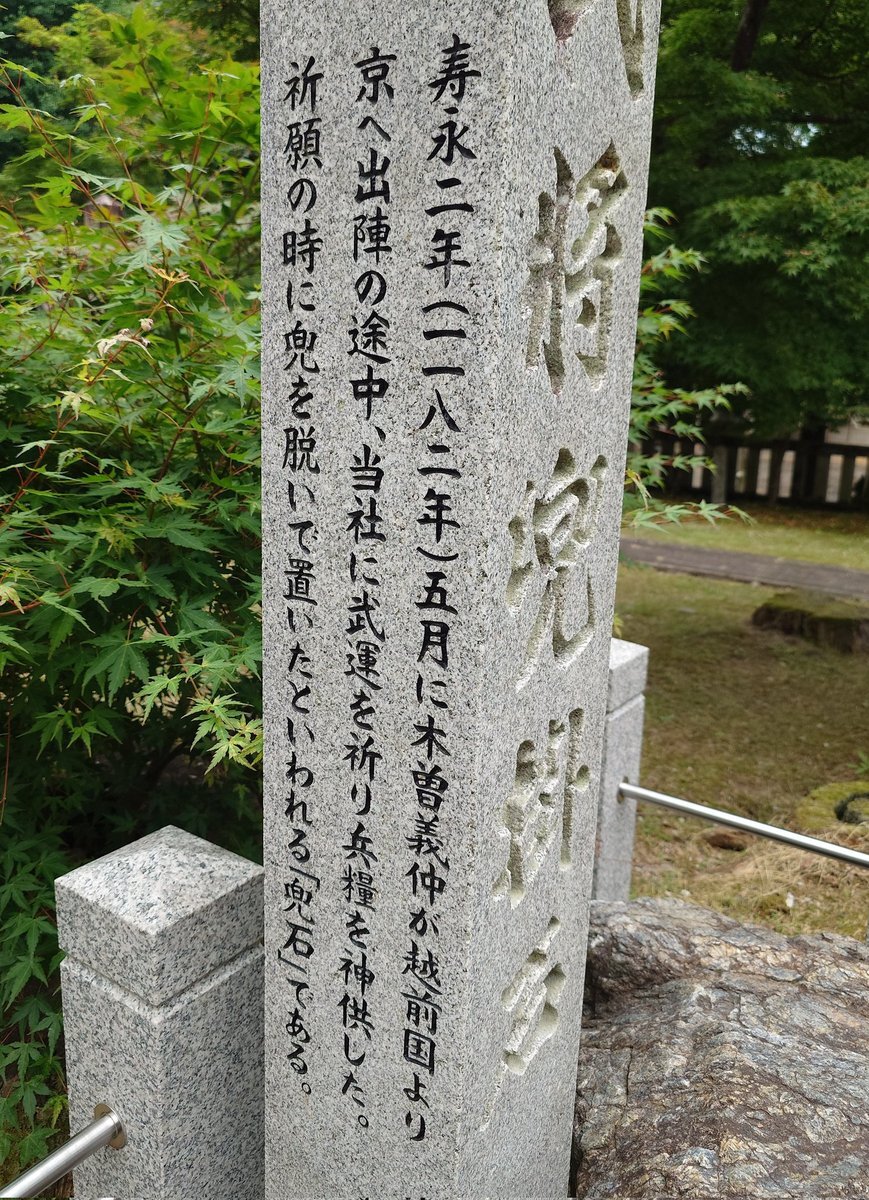 寿永二年（一一八二年）五月に木曽義仲が越前国より
京へ出陣の途中、当社に武運を祈り兵糧を神供した。
祈願の時に兜を脱いで置いたといわれる「兜石」である。
将兜掛石